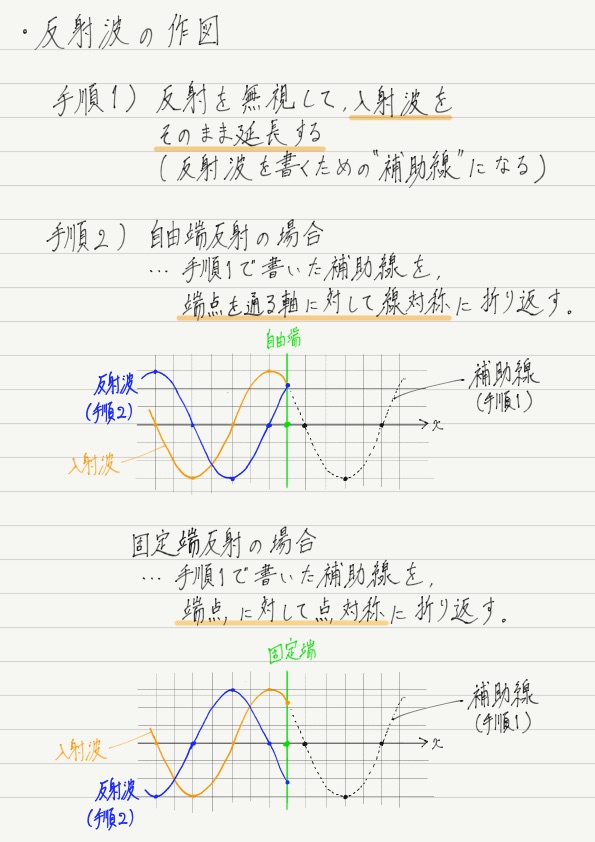 ・反射波の作図
手順1) 反射を無視して、入射波を
そのまま延長する
(反射波を書くための"補助線"になる)
手順2) 自由端反射の場合
… 手順1で書いた補助線を、
端点を通る軸に対して線対称に折り返す。
自由端
反射波
(手順2)
補助線
(手順1)
x
入射波
固定端反射の場合
… 手順1で書いた補助線を、
端点に対して点対称に折り返す。
固定端
補助線
(手順1)
x
入射波
反射波
(手順2)